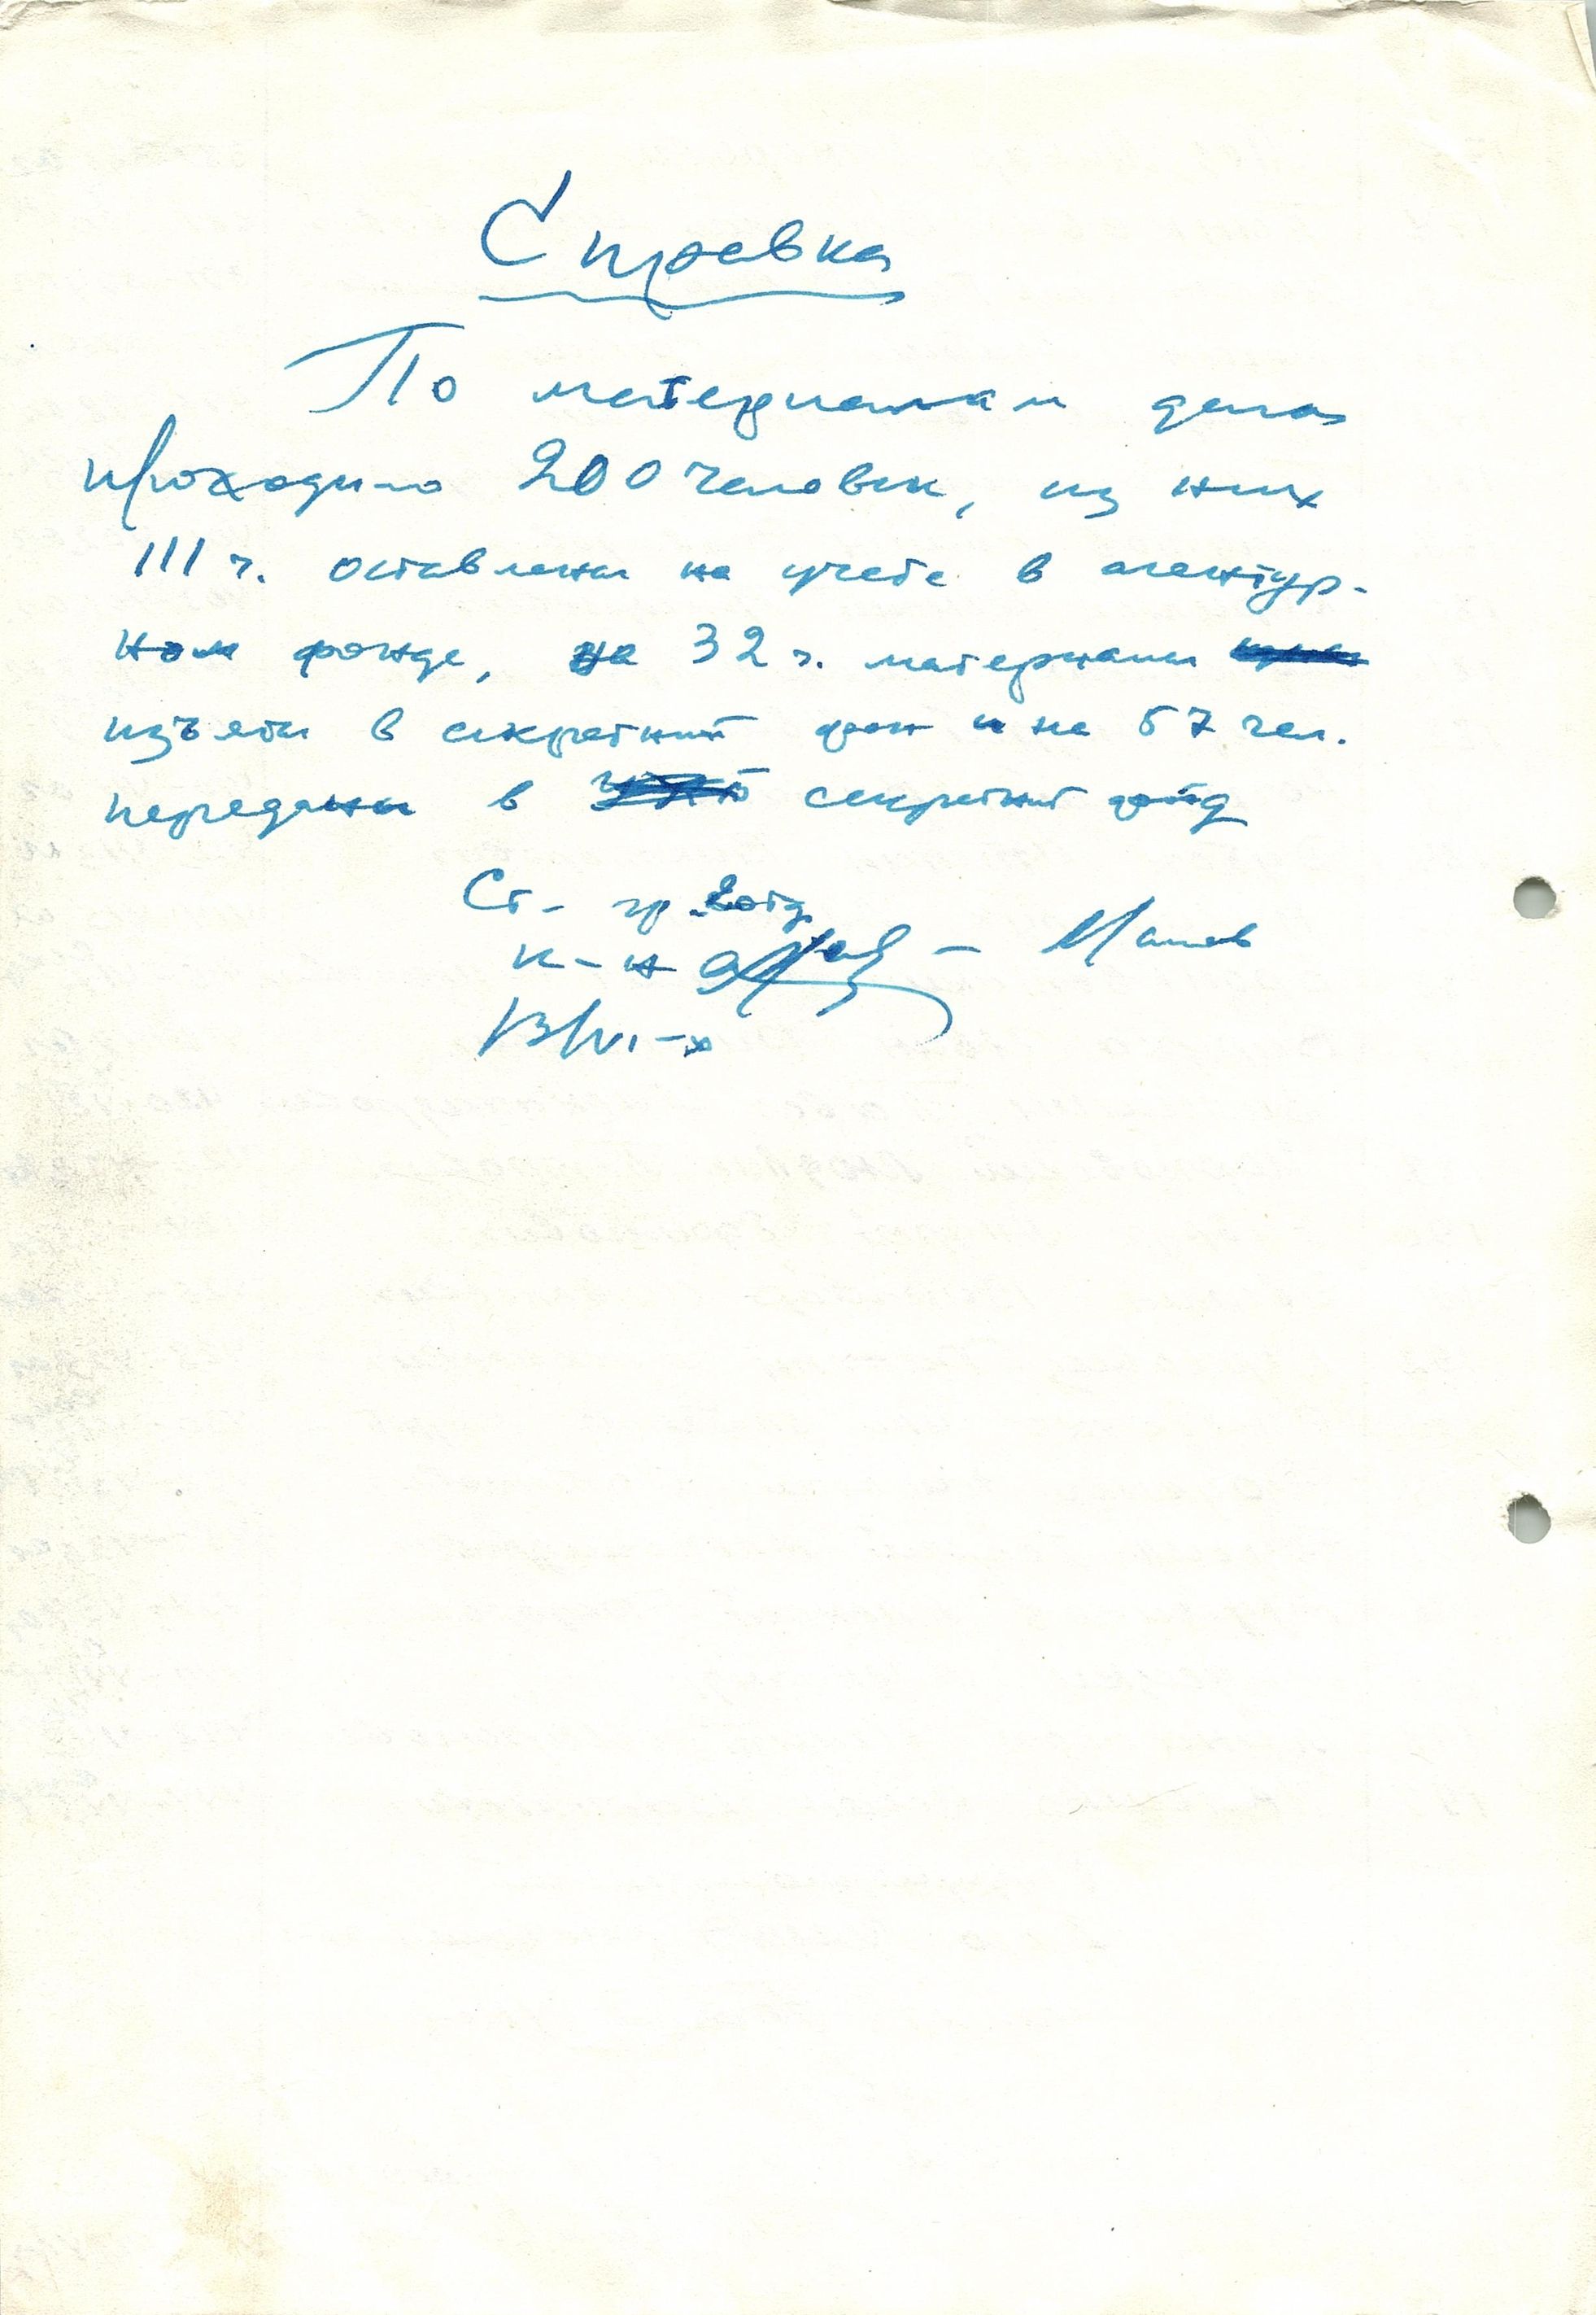 Справка
По материалам дела
проходило 200 человек, из них
111 ч. оставлены на учете в агентур-
ном фонде, на 32 ч. материалы
изъяты в секретный фон и на 57 чел.
передани в секретный фонд
Ст. гр. 2 отд.
к-н